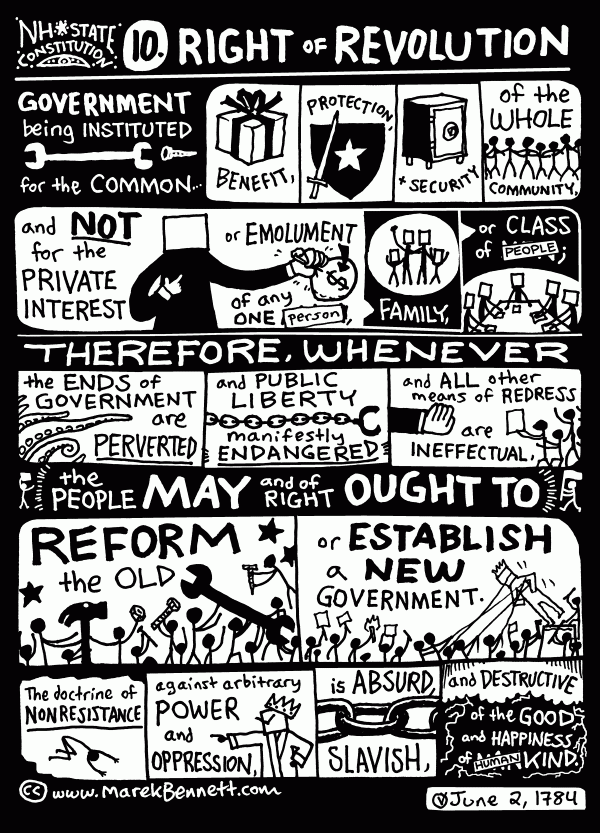 NH STATE
CONSTITUTION
10. RIGHT OF REVOLUTION
GOVERNMENT
being INSTITUTED
for the COMMON...
BENEFIT,
PROTECTION,
+ SECURITY
of the
WHOLE
COMMUNITY,
and NOT
for the
PRIVATE
INTEREST
or EMOLUMENT
$
of any
ONE person,
FAMILY,
or CLASS
of PEOPLE;
THEREFORE, WHENEVER
the ENDS of
GOVERNMENT
are
PERVERTED
and PUBLIC
LIBERTY
manifestly
ENDANGERED
and ALL other
means of REDRESS
are
INEFFECTUAL,
the
PEOPLE MAY and of
RIGHT OUGHT TO
REFORM
the OLD
or ESTABLISH
a NEW
GOVERNMENT.
The doctrine of
NONRESISTANCE
against arbitrary
POWER
and
OPPRESSION,
is ABSURD,
SLAVISH,
and DESTRUCTIVE
of the GOOD
and HAPPINESS
of HUMAN KIND.
cc www.MarekBennett.com
June 2, 1784